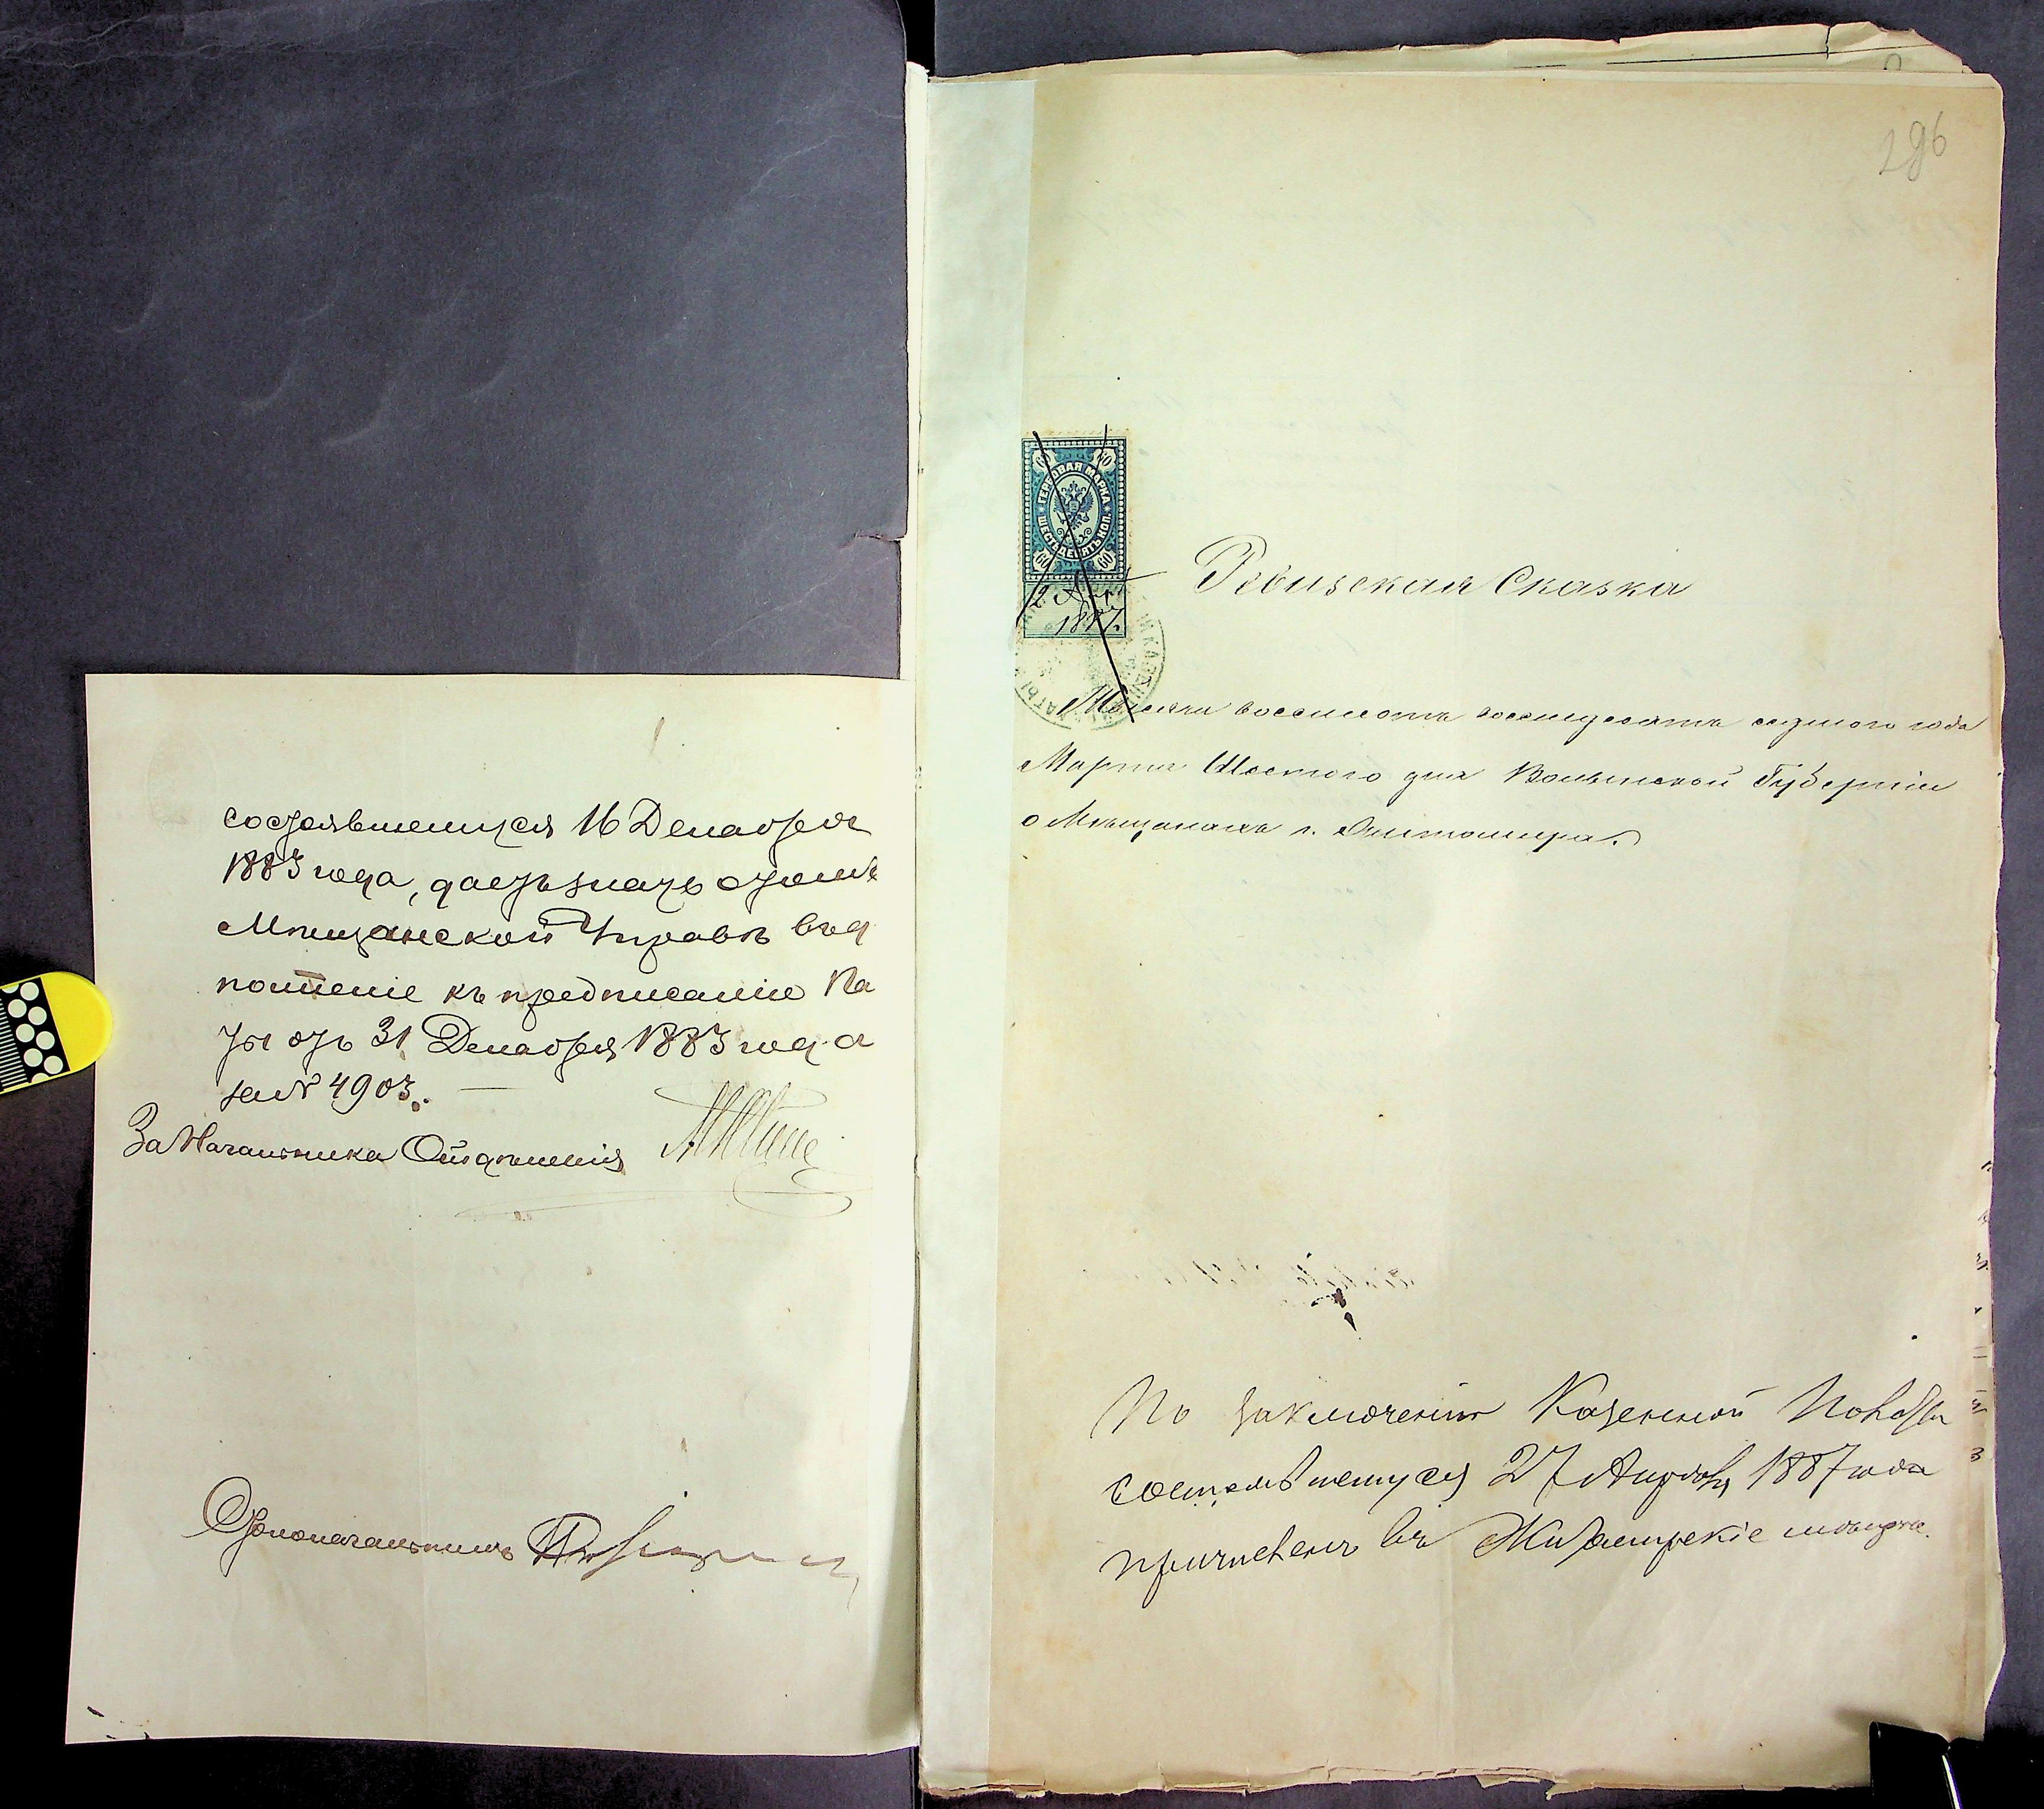 состоявшемуся 16 Декабря
1883 года, даетъ знать о томъ
Мѣщанской Управѣ въ д
полненіе къ предписанію Па
ты отъ 31 Декабря 1883 года
за № 4903.
За Начальника Отдѣленія
Столоначальникъ
296
ГЕРБОВАЯ МАРКА
ШЕСТЬДЕСЯТЪ КОП.
60 60
60 60
12 Апр
1887.
Ревизская Сказка
Тысяча восемьсотъ восемьдесятъ седьмого года
Марта Шестого дня Волынской Губерніи
о Мѣщанахъ г. Житомира.
По заключенію Казенной Палаты
состоявшемуся 27 Апрѣля 1887 года
причисленъ въ Житомирскіе мѣщане.